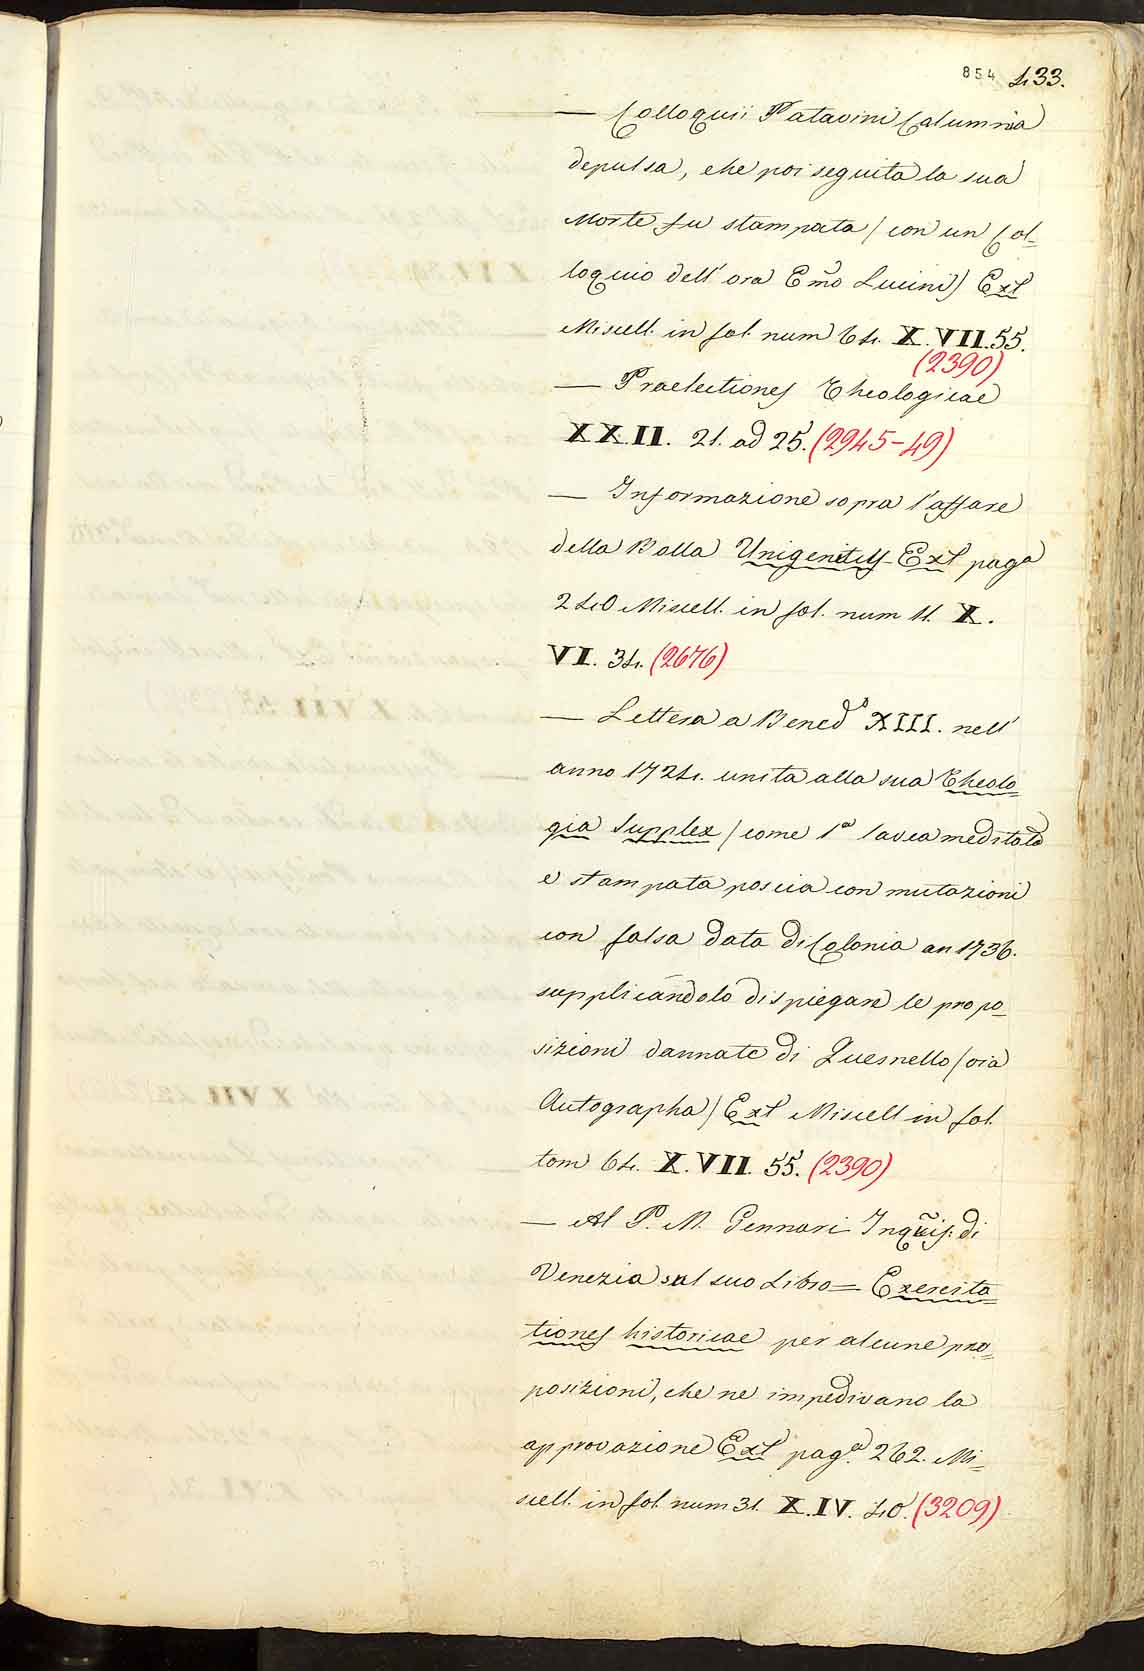 854 433.
— Colloquii Patavini Calumnia
depulsa, che poi seguita la sua
Morte fu stampata / con un Col=
loquio dell' ora Emo Lucini) Ext
Miscell. in fol. num 64. X.VII.55.
(2390)
— Praelectiones Theologicae
XXII. 21. ad 25. (2945-49)
— Informazione sopra l'affare
della Bolla Unigenitus Ext paga
240 Miscell. in fol. num 11. X.
VI. 34. (2676)
— Lettera a Bened° XIII. nell'
anno 1724. unita alla sua Theolo=
gia Supplex / come 1a l'avea meditata
e stampata poscia con mutazioni
con falsa data di Colonia an 1736.
supplicandolo di spiegare le propo=
sizioni dannate di Quesnello / via
Autographa) Ext Miscell in fol.
tom 64. X.VII. 55. (2390)
— Al P. M. Gennari Inquis: di
Venezia sul suo Libro = Exercita=
tiones historicae per alcune pro=
posizioni, che ne impedivano la
approvazione Ext pag.a 262. Mi=
scell. in fol. num 31. X.IV. 40. (3209)